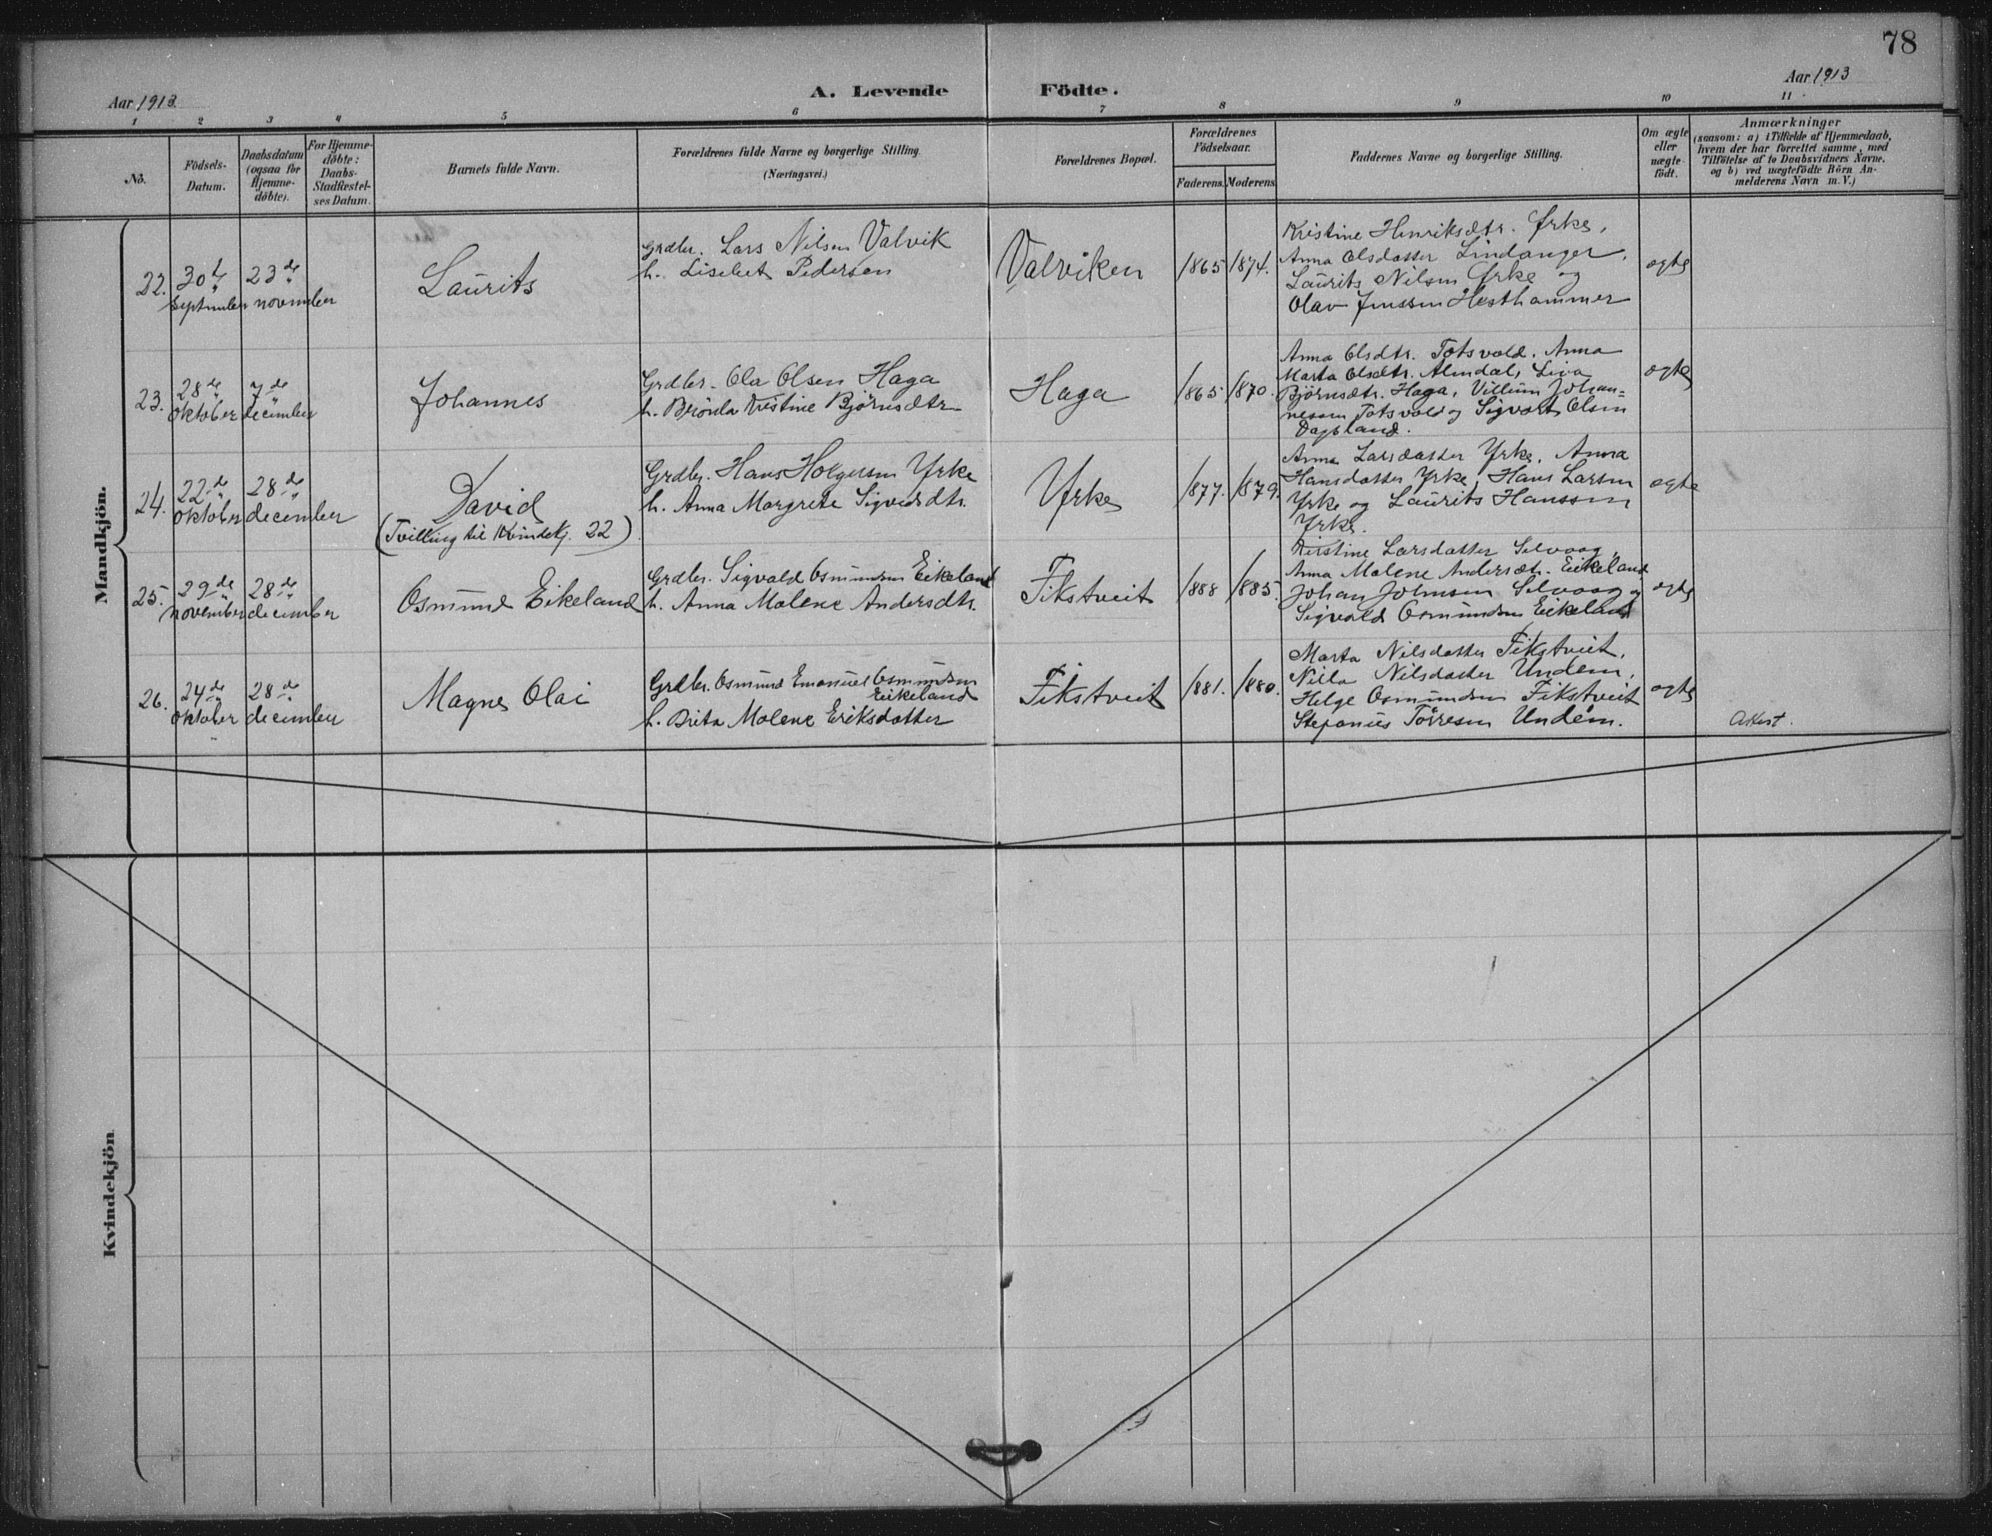 78
Aar 1913.
A. Levende Födte.
Aar 1913
1 2 3 4 5 6 7 8 9 10 11
No.
Födsels-
Datum.
Daabsdatum
(ogsaa for
Hjemme-
døbte).
For Hjemme-
døbte:
Daabs-
Stadfæstel-
ses Datum.
Barnets fulde Navn.
Forældrenes fulde Navne og borgerlige Stilling.
(Næringsvei.)
Forældrenes Bopæl.
Forældrenes
Födselsaar.
Faderens. Moderens.
Faddernes Navne og borgerlige Stilling.
Om ægte
eller
uægte
födt.
Anmærkninger
(saasom: a) i Tilfælde af Hjemmedaab,
hvem der har forrettet samme, med
Tilföielse af to Daabsvidners Navne.
og b) ved uægtefödte Börn An-
melderens Navn m. V.)
Mandkjön.
22.
30te
september
23de
november
Laurits
Grdbr. Lars Nilsen Valvik
h. Lisebet Pedersen
Valviken
1865 1874.
Kristine Henriksdtr. Yrke,
Anna Olsdatter Lindanger,
Laurits Nilsen Yrke og
Olav Jenssen Hesthammer
ægte
23.
28de
oktober
7de
december
Johannes
Grdbr. Ola Olsen Haga
h. Berönla Kristine Bjørnsdtr
Haga
1865 1870.
Anna Olsdtr. Totsvold. Anna
Marta Olsdtr. Almdal, Liva
Bjørnsdtr. Haga, Villum Johan-
nesen Totsvold og Sigvart Olsen
Dagsland.
ægte
24.
22de
oktober
28de
december
David
(Tvilling til Kvindekj. 22)
Grdbr. Hans Holgersen Yrke
h. Anna Margrete Sigverdsdtr.
Yrke
1877. 1879.
Anna Larsdatter Yrke, Anna
Hansdatter Yrke, Hans Larsen
Yrke og Laurits Hanssen
Yrke.
ægte
25.
29de
november
28de
december
Osmund Eikeland
Grdbr. Sigvald Osmundsen Eikeland
h. Anna Malene Andersdtr.
Fikstveit
1888 1885.
Kirstine Larsdatter Selvaag,
Anna Malene Andersdtr. Eikeland
Johan Johnsen Selvaag og
Sigvald Osmundsen Eikeland
ægte
26.
24de
oktober
28de
december
Magnes Olai
Grdbr. Osmund Emanuel Osmundsen
Eikeland
h. Brita Malene Eriksdatter
Fikstveit
1881. 1880.
Marta Nilsdatter Fikstveit,
Nilla Nilsdatter Undem,
Helge Osmundsen Fikstveit
Stefanus Tørresen Undem.
ægte
Attest.
Kvindekjön